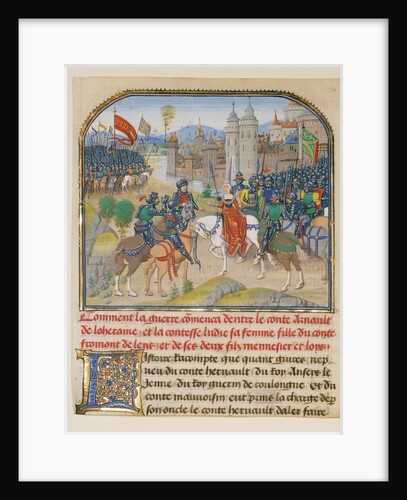 Comment la guerre cõmenca dentre le conte Arnault
de loheraine et la contesse ludie sa femme fille du conte
fromont de lens et de ses deux filz mennesier et loys
Istore racompte que quant guires nep
ueu du conte heruault du Roy Anseys le
Jenne du Roy guerin de coulongne Et du
conte mauuoisin eut prins la charge de p
son oncle le conte heruault daler faire